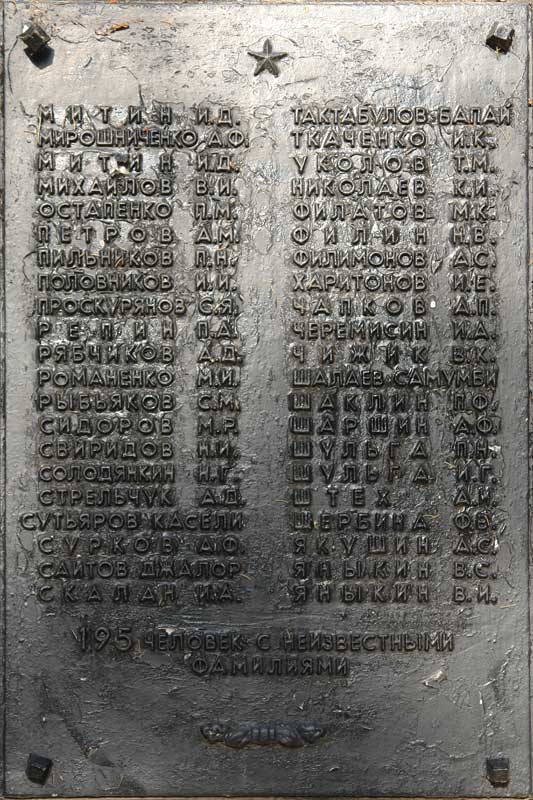 МИТИН И.Д.
МИРОШНИЧЕНКО А.Ф.
МИТИН И.Д.
МИХАЙЛОВ В.И.
ОСТАПЕНКО П.М.
ПЕТРОВ А.М.
ПИЛЬНИКОВ П.Н.
ПОЛОВНИКОВ И.И.
ПРОСКУРЯНОВ С.Я.
РЕПИН П.А.
РЯБЧИКОВ А.Д.
РОМАНЕНКО М.И.
РЫБЬЯКОВ С.М.
СИДОРОВ М.Р.
СВИРИДОВ Н.И.
СОЛОДЯНКИН Н.Г.
СТРЕЛЬЧУК А.Д.
СУТЬЯРОВ КАСЕЛИ
СУРКОВ А.Ф.
САИТОВ ДЖАЛОР
СКАЛАН И.А.
ТАКТАБУЛОВ БАПАЙ
ТКАЧЕНКО И.К.
УКОЛОВ Т.М.
НИКОЛАЕВ К.И.
ФИЛАТОВ М.К.
ФИЛИН Н.В.
ФИЛИМОНОВ А.С.
ХАРИТОНОВ И.Е.
ЧАПКОВ А.П.
ЧЕРЕМИСИН И.А.
ЧИЖИК В.К.
ШАЛАЕВ САМУМБИ
ШАКЛИН П.Ф.
ШАРШИН А.Ф.
ШУЛЬГА П.Н.
ШУЛЬГА И.Г.
ШТЕХ А.И.
ЩЕРБИНА Ф.В.
ЯКУШИН А.С.
ЯНЫКИН В.С.
ЯНЫКИН В.И.
195 ЧЕЛОВЕК С НЕИЗВЕСТНЫМИ
ФАМИЛИЯМИ